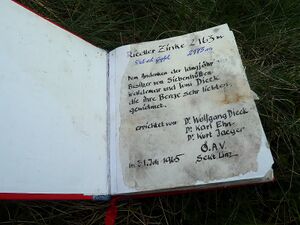 Riedler Zinke 2163 m
Dem Andenken der langjähr.
Besitzer von Siebenhütten
Waldemar und Toni Dieck
die ihre Berge sehr liebten,
gewidmet.
errichtet von Dr. Wolfgang Dieck
Dr. Karl Ehn
Dr. Kurt Jaeger
Ö.A.V.
Sekt Linz